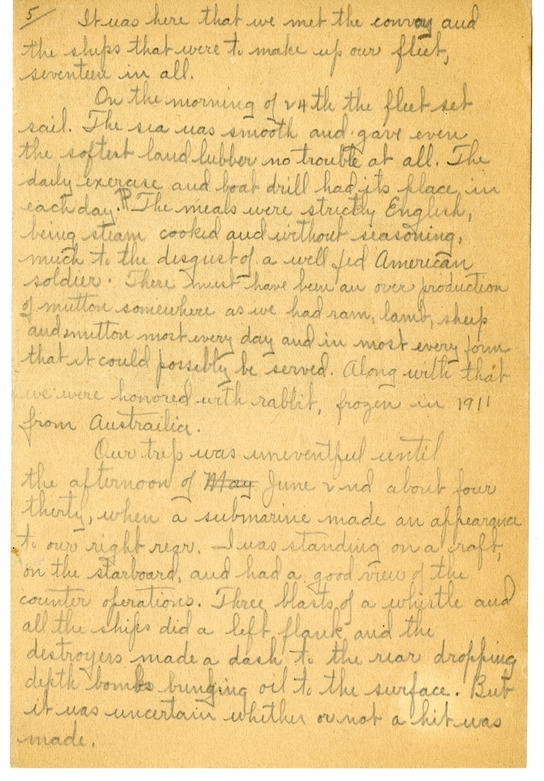 5/ It was here that we met the convoy and
the ships that were to make up our fleet,
seventeen in all.
On the morning of 24th the fleet set
sail. The sea was smooth and gave even
the softest land lubber no trouble at all. The
daily exercise and boat drill had its place in
each day. ¶ The meals were strictly English,
being steam cooked and without seasoning,
much to the disgust of a well fed American
soldier. There must have been an over production
of mutton somewhere as we had ram, lamb, sheep
and mutton most every day and in most every form
that it could possibly be served. Along with that
we were honored with rabbit, frozen in 1911
from Austrailia.
Our trip was uneventful until
the afternoon of May June 2nd about four
thirty, when a submarine made an appearance
to our right rear. I was standing on a raft,
on the starboard, and had a good view of the
counter operations. Three blasts of a whistle and
all the ships did a left flank and the
destroyers made a dash to the rear dropping
depth bombs bringing oil to the surface. But
it was uncertain whether or not a hit was
made.